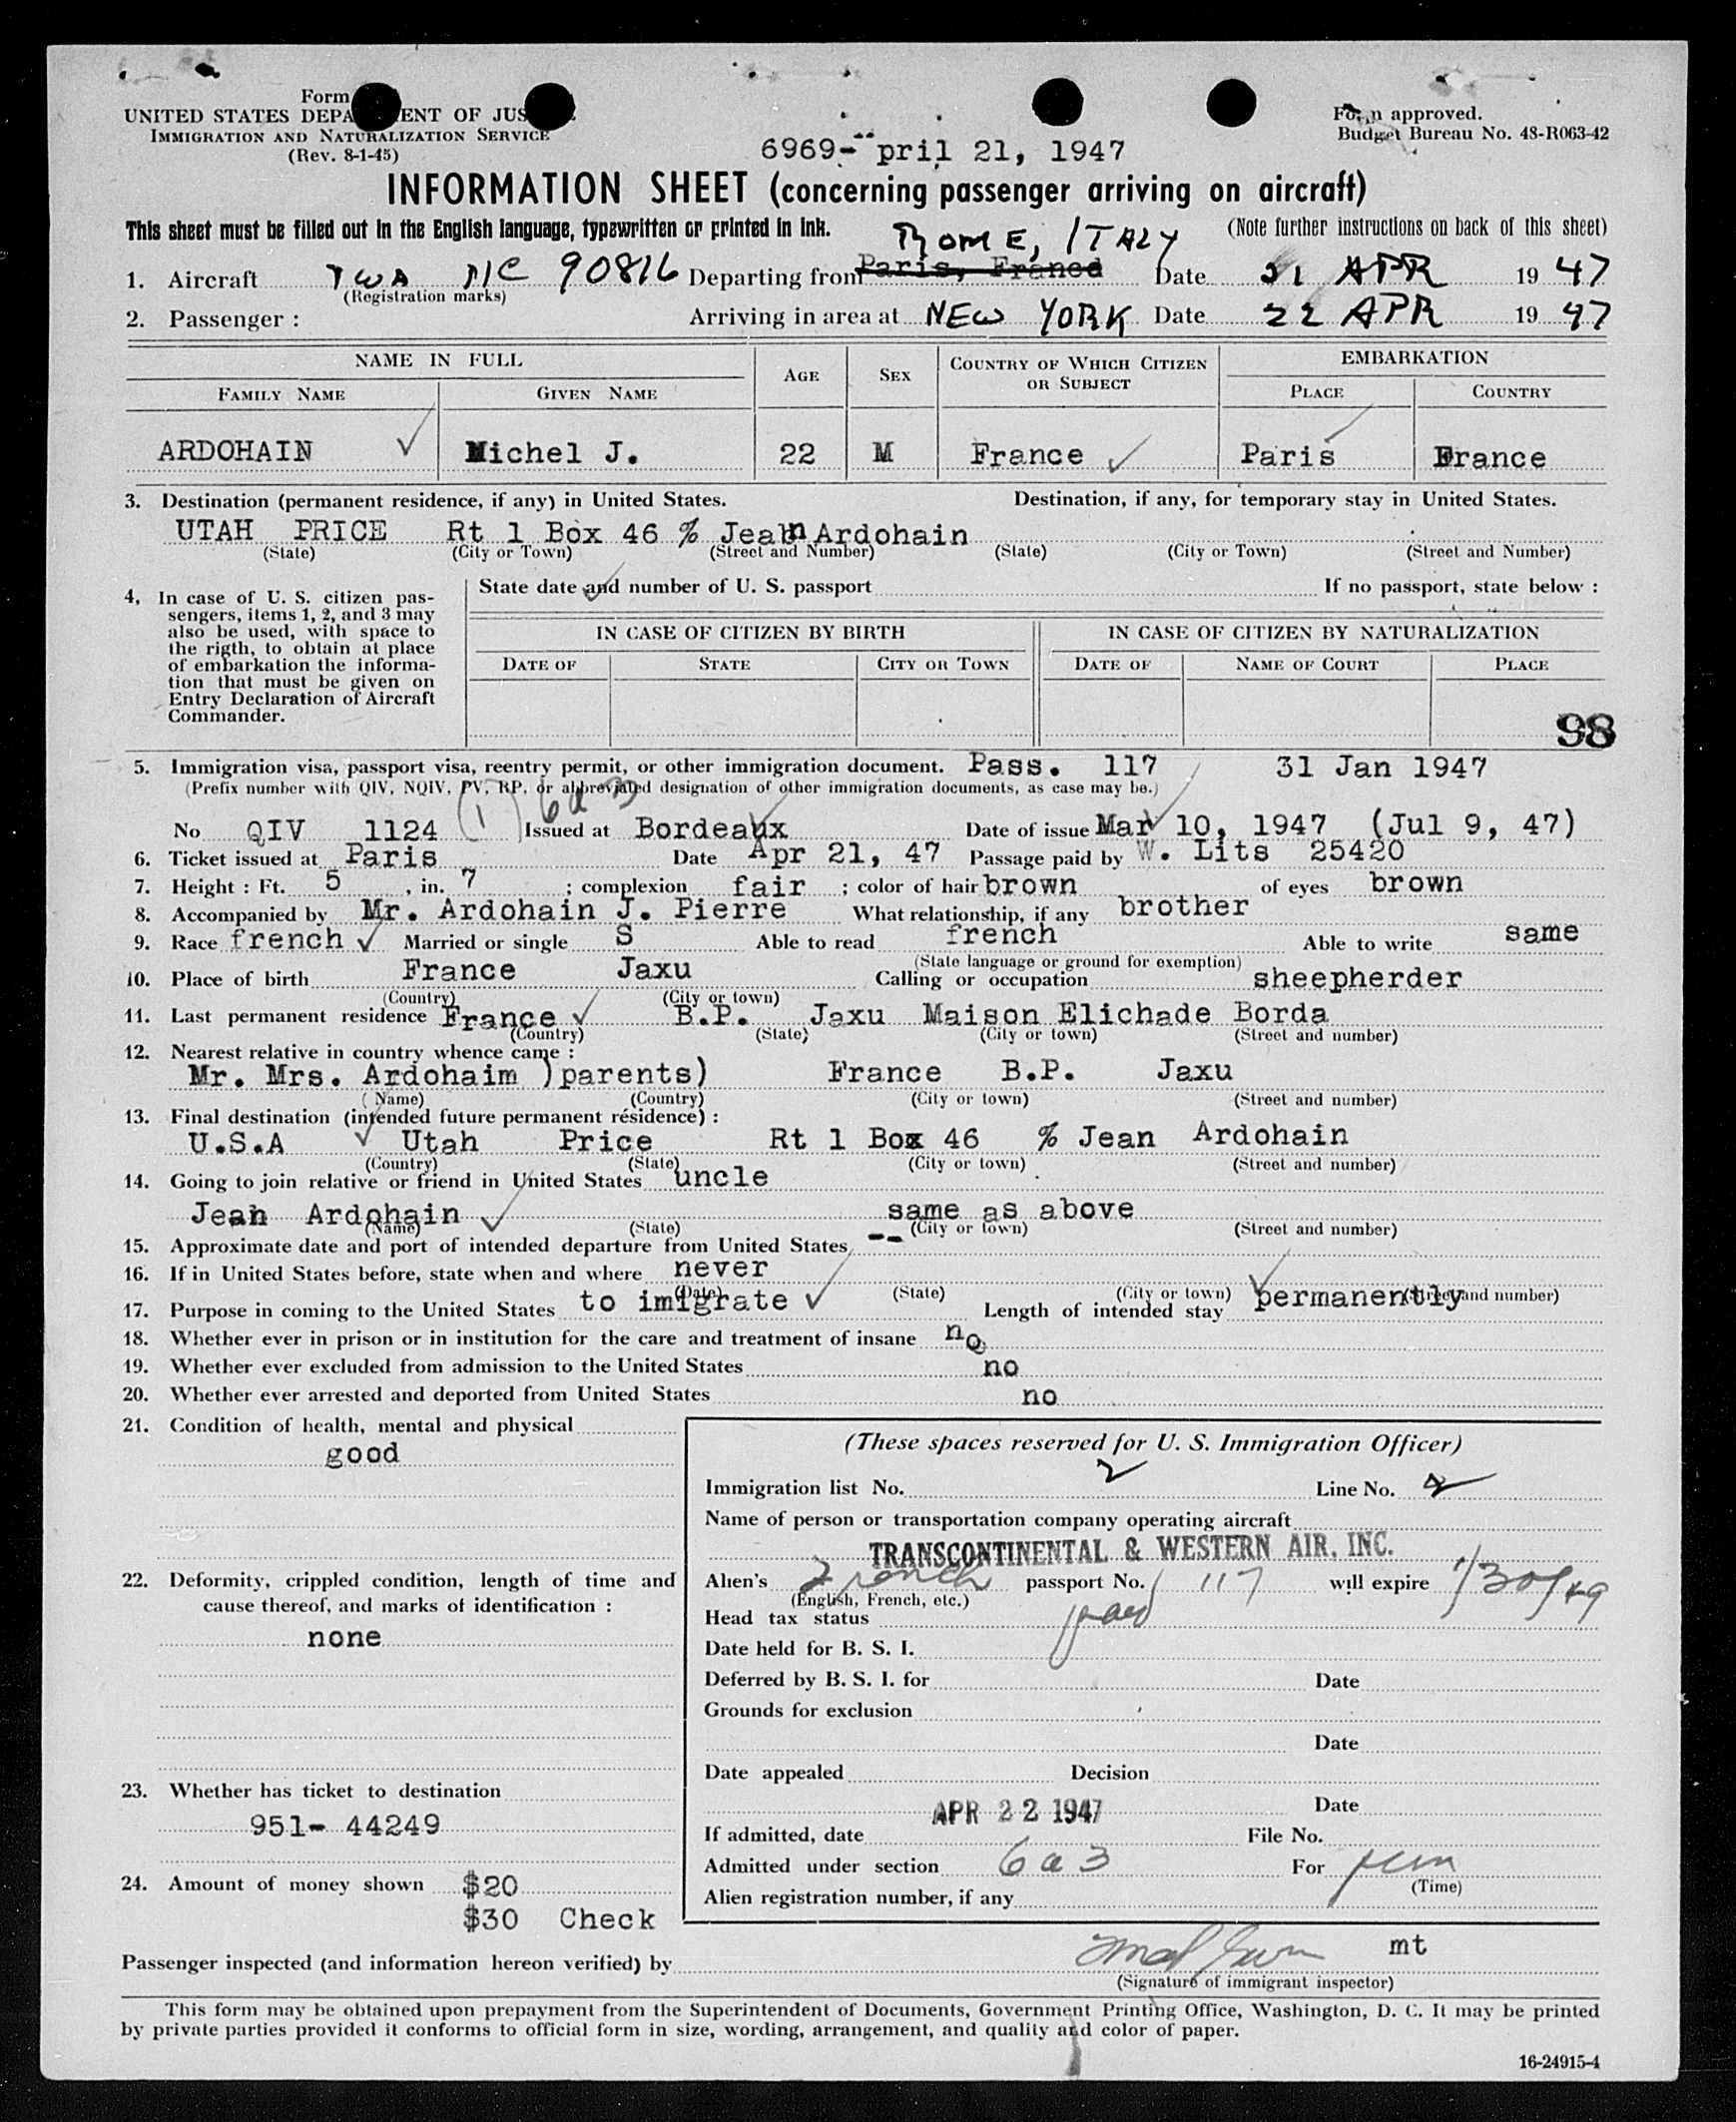 Form
UNITED STATES DEPA ENT OF JUS
IMMIGRATION AND NATURALIZATION SERVICE
(Rev. 8-1-45)
Form approved.
Budget Bureau No. 48-R063-42
6969- pril 21, 1947
INFORMATION SHEET (concerning passenger arriving on aircraft)
This sheet must be filled out in the English language, typewritten or printed in ink.
(Note further instructions on back of this sheet)
ROME, ITALY
1. Aircraft TWA NC 90816 Departing from Paris, France Date 21 APR 19 47
(Registration marks)
2. Passenger : Arriving in area at NEW YORK Date 22 APR 19 47
NAME IN FULL AGE SEX COUNTRY OF WHICH CITIZEN OR SUBJECT EMBARKATION
FAMILY NAME GIVEN NAME PLACE COUNTRY
ARDOHAIN Michel J. 22 M France Paris France
3. Destination (permanent residence, if any) in United States. Destination, if any, for temporary stay in United States.
UTAH PRICE Rt 1 Box 46 % Jean Ardohain
(State) (City or Town) (Street and Number) (State) (City or Town) (Street and Number)
4, In case of U. S. citizen pas-
sengers, items 1, 2, and 3 may
also be used, with space to
the rigth, to obtain at place
of embarkation the informa-
tion that must be given on
Entry Declaration of Aircraft
Commander.
State date and number of U. S. passport If no passport, state below :
IN CASE OF CITIZEN BY BIRTH IN CASE OF CITIZEN BY NATURALIZATION
DATE OF STATE CITY OR TOWN DATE OF NAME OF COURT PLACE
98
5. Immigration visa, passport visa, reentry permit, or other immigration document. Pass. 117 31 Jan 1947
(Prefix number with QIV, NQIV, PV, RP, or abbreviated designation of other immigration documents, as case may be.)
(1) 6a3
No QIV 1124 Issued at Bordeaux Date of issue Mar 10, 1947 (Jul 9, 47)
6. Ticket issued at Paris Date Apr 21, 47 Passage paid by W. Lits 25420
7. Height : Ft. 5 , in. 7 ; complexion fair ; color of hair brown of eyes brown
8. Accompanied by Mr. Ardohain J. Pierre What relationship, if any brother
9. Race french Married or single S Able to read french Able to write same
(State language or ground for exemption)
10. Place of birth France Jaxu Calling or occupation sheepherder
(Country) (City or town)
11. Last permanent residence France B.P. Jaxu Maison Elichade Borda
(Country) (State) (City or town) (Street and number)
12. Nearest relative in country whence came :
Mr. Mrs. Ardohaim )parents) France B.P. Jaxu
(Name) (Country) (City or town) (Street and number)
13. Final destination (intended future permanent résidence) :
U.S.A Utah Price Rt 1 Box 46 % Jean Ardohain
(Country) (State) (City or town) (Street and number)
14. Going to join relative or friend in United States uncle
Jean Ardohain same as above
(Name) (State) (City or town) (Street and number)
15. Approximate date and port of intended departure from United States --
16. If in United States before, state when and where never
(Date) (State) (City or town) (Street and number)
17. Purpose in coming to the United States to imigrate Length of intended stay permanently
18. Whether ever in prison or in institution for the care and treatment of insane no
19. Whether ever excluded from admission to the United States no
20. Whether ever arrested and deported from United States no
21. Condition of health, mental and physical
good
22. Deformity, crippled condition, length of time and
cause thereof, and marks of identification :
none
23. Whether has ticket to destination
951- 44249
24. Amount of money shown $20
$30 Check
(These spaces reserved for U. S. Immigration Officer)
Immigration list No. 2 Line No. 2
Name of person or transportation company operating aircraft
TRANSCONTINENTAL & WESTERN AIR, INC.
Alien's French passport No. 117 will expire 1/30/49
(English, French, etc.)
Head tax status paid
Date held for B. S. I.
Deferred by B. S. I. for Date
Grounds for exclusion
Date
Date appealed Decision
Date
APR 22 1947
If admitted, date File No.
Admitted under section 6a3 For perm
(Time)
Alien registration number, if any
mt
Passenger inspected (and information hereon verified) by
(Signature of immigrant inspector)
This form may be obtained upon prepayment from the Superintendent of Documents, Government Printing Office, Washington, D. C. It may be printed
by private parties provided it conforms to official form in size, wording, arrangement, and quality and color of paper.
16-24915-4